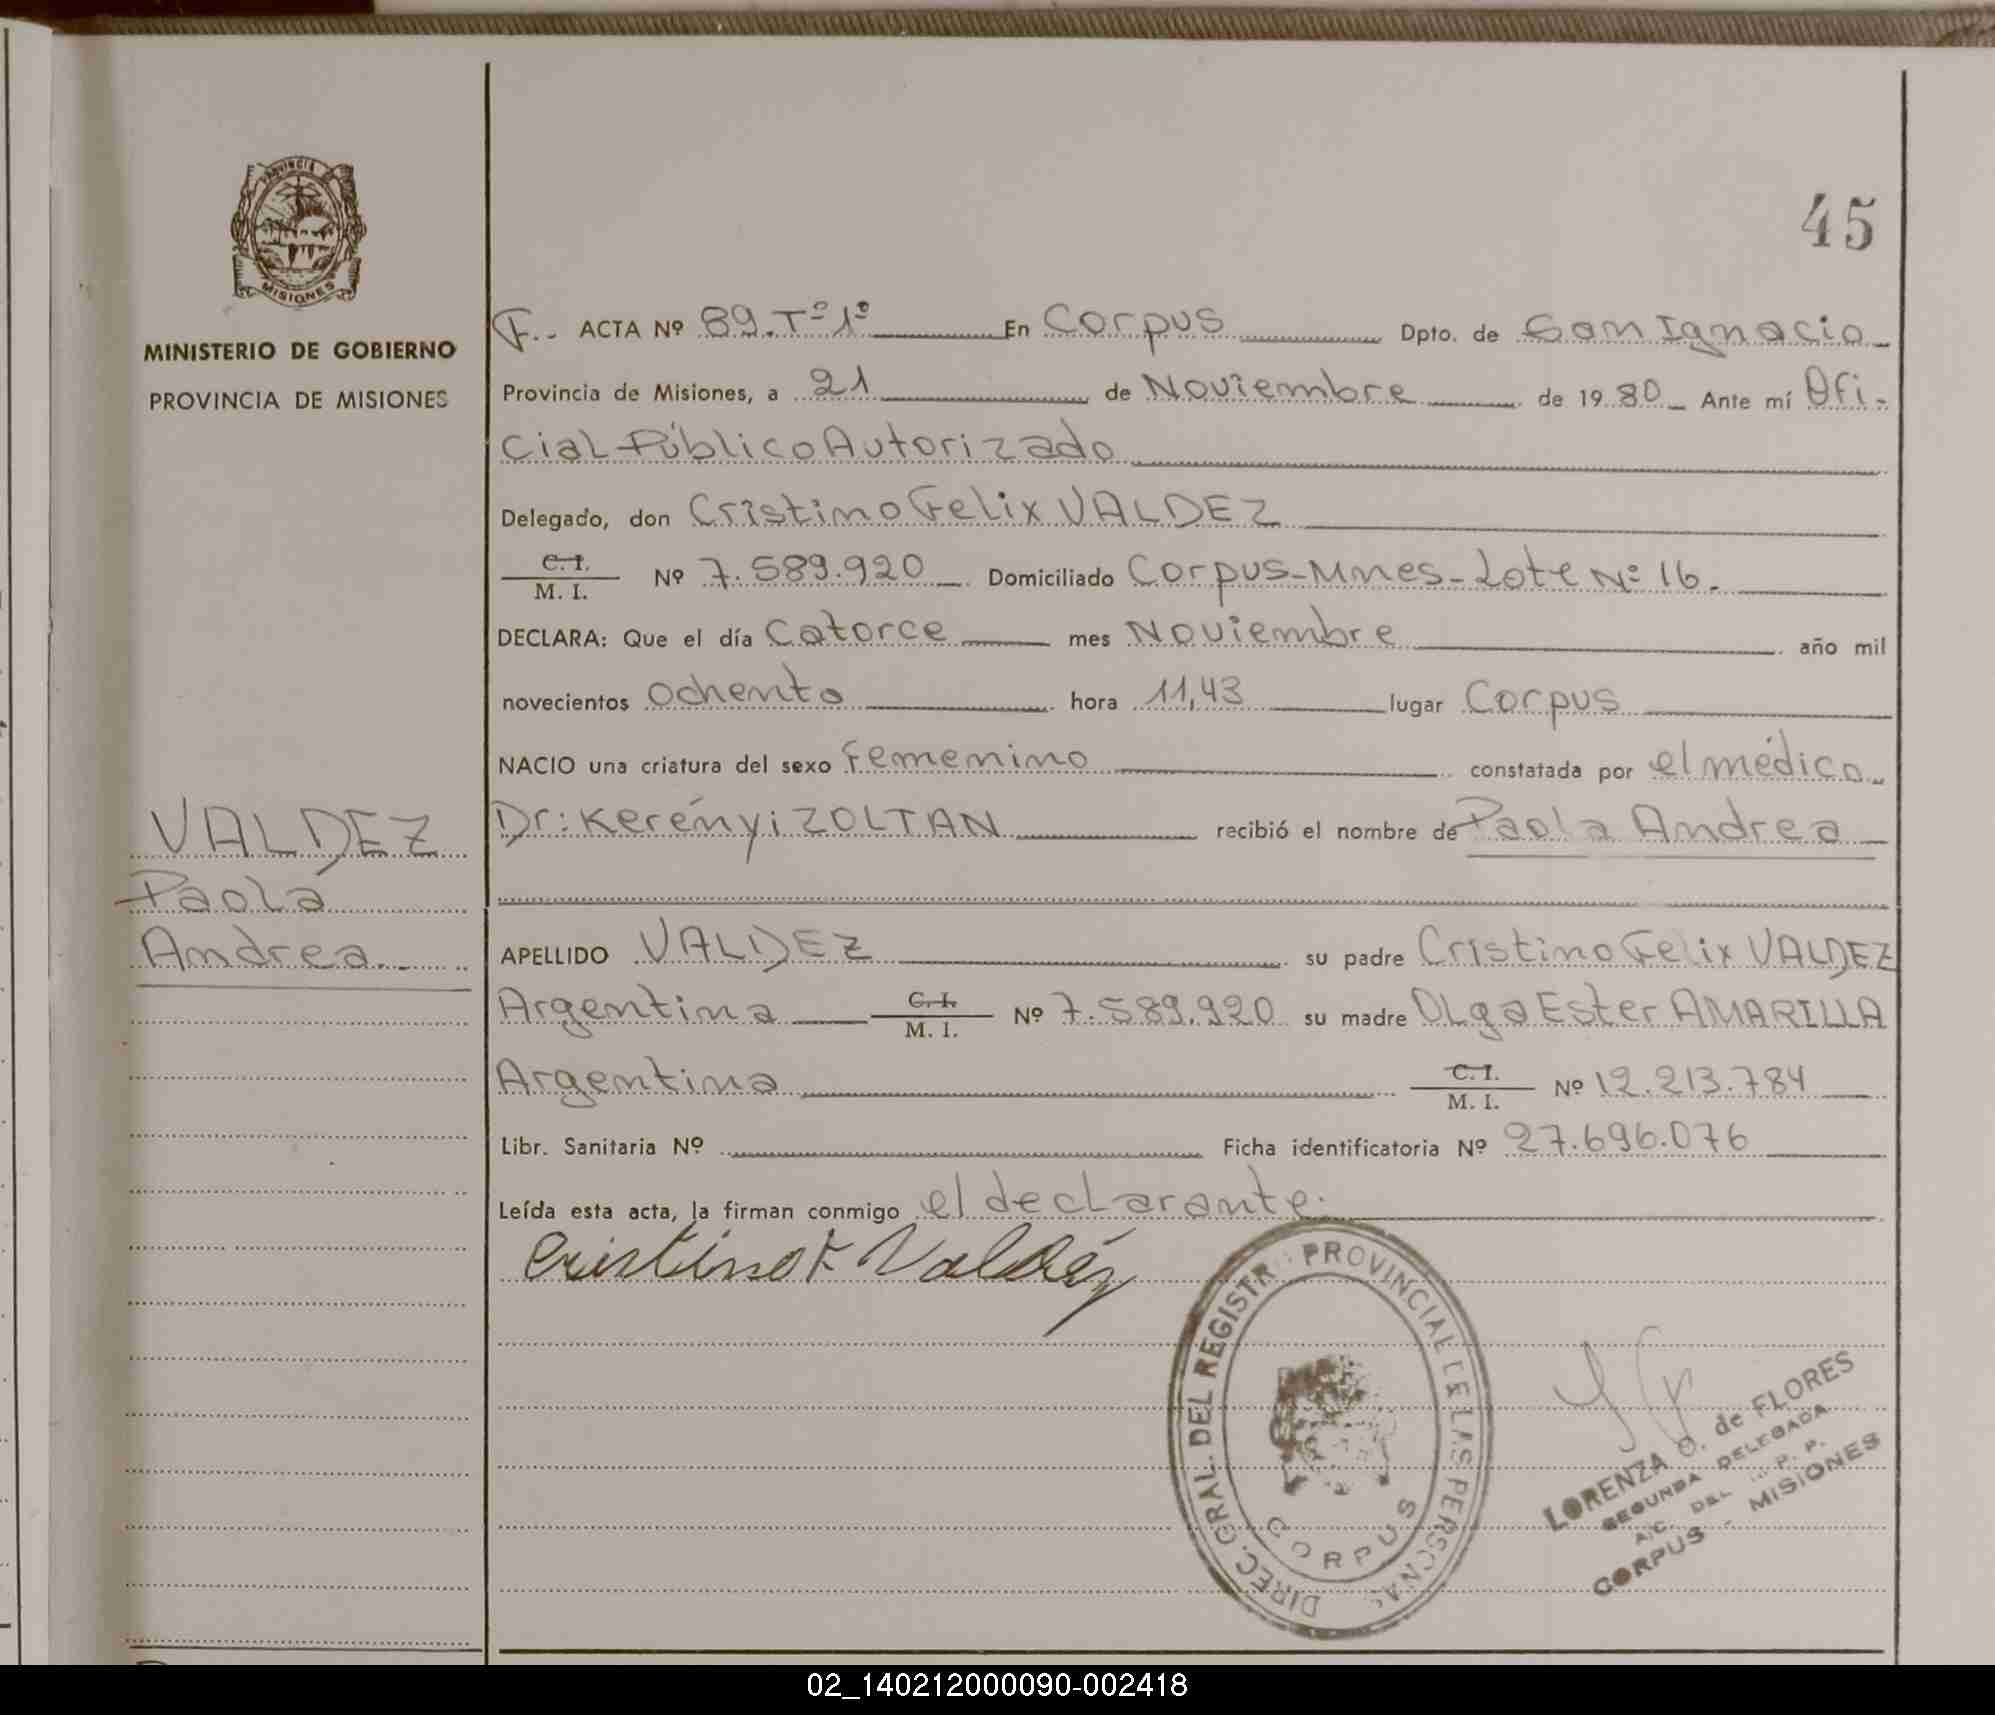 PROVINCIA
MISIONES
MINISTERIO DE GOBIERNO
PROVINCIA DE MISIONES
VALDEZ
Paola
Andrea.
45
F.. ACTA Nº 89.Tº1º En Corpus Dpto. de San Ignacio
Provincia de Misiones, a 21 de Noviembre de 1980 Ante mí Ofi-
cial Público Autorizado
Delegado, don Cristino Felix VALDEZ
C. I.
M. I. Nº 7.589.920 Domiciliado Corpus-Mnes-Lote Nº 16.
DECLARA: Que el día Catorce mes Noviembre año mil
novecientos ochenta hora 11,43 lugar Corpus
NACIO una criatura del sexo Femenino constatada por el médico
Dr: Kerényi ZOLTAN recibió el nombre de Paola Andrea
APELLIDO VALDEZ su padre Cristino Felix VALDEZ
Argentina C. I. M. I. Nº 7.589.920 su madre OLga Ester AMARILLA
Argentina C. I. M. I. Nº 12.213.784
Libr. Sanitaria Nº Ficha identificatoria Nº 27.696.076
Leída esta acta, la firman conmigo el declarante.
Cristino F Valdéz
DIREC. GRAL. DEL REGISTR PROVINCIAL DE LAS PERSONAS
CORPUS
LORENZA O. de FLORES
SEGUNDA DELEGADA
A/C. DEL P. P.
CORPUS - MISIONES
02_140212000090-002418